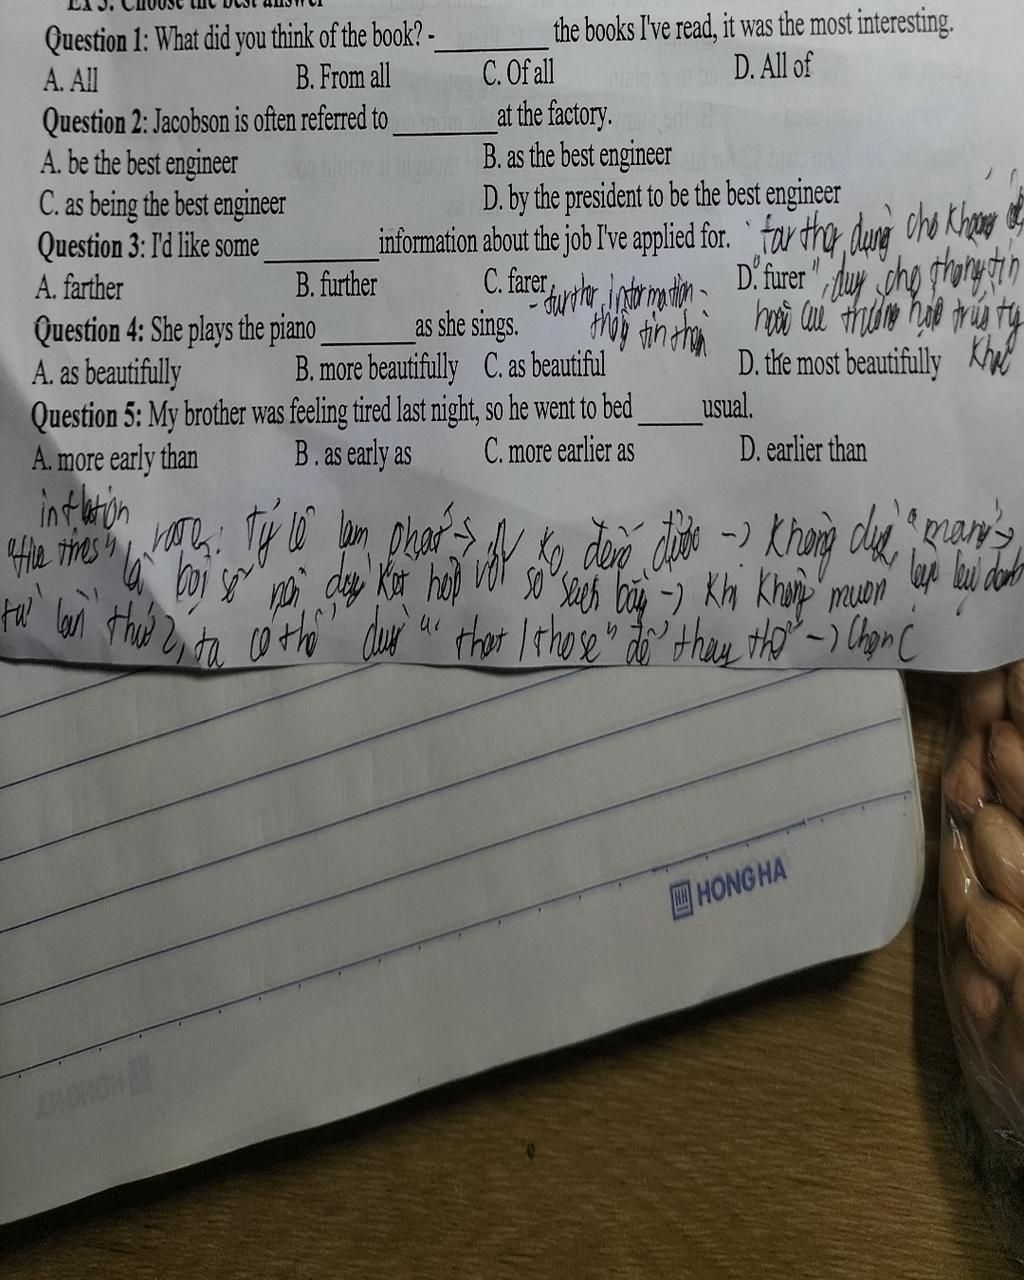 EX 3: Choose the best answer
Question 1: What did you think of the book? -__________ the books I've read, it was the most interesting.
A. All B. From all C. Of all D. All of
Question 2: Jacobson is often referred to __________at the factory.
A. be the best engineer B. as the best engineer
C. as being the best engineer D. by the president to be the best engineer
Question 3: I'd like some __________information about the job I've applied for.
A. farther B. further C. farer D. furer
farther dùng cho khoảng
dùng cho thông tin
hoặc các trường hợp trừu tượng
khác
- further information
thông tin thêm
Question 4: She plays the piano ________as she sings.
A. as beautifully B. more beautifully C. as beautiful D. the most beautifully
Question 5: My brother was feeling tired last night, so he went to bed _____usual.
A. more early than B . as early as C. more earlier as D. earlier than
inflation
rate: Tỷ lệ lạm phát → N ko đếm được → không dùng "many"
"five times" là bội số nên dùng kết hợp với so sánh bằng → khi không muốn lặp lại danh
từ lần thứ 2, ta có thể dùng "that / those" để thay thế → chọn C
HONG HA